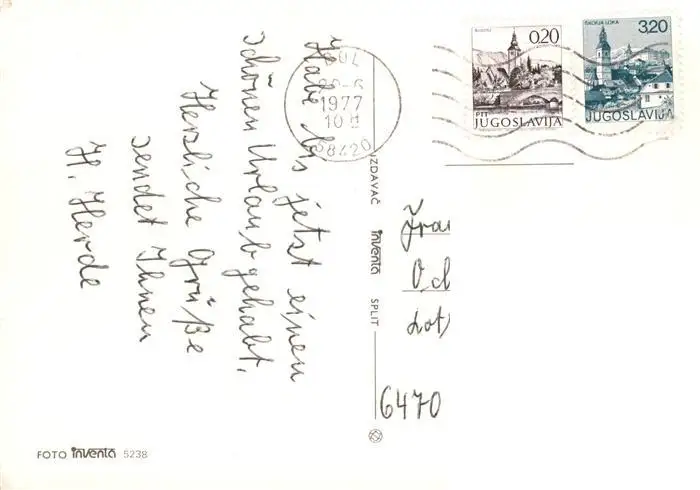 Habe bis jetzt einen
schönen Urlaub gehabt.
Herzliche Grüße
sendet Ihnen
H. Herde
BOL
1977
10
58420
BLED
0.20
PTT
JUGOSLAVIJA
ŠKOFJA LOKA
3,20
JUGOSLAVIJA
IZDAVAČ inventa SPLIT
6470
FOTO inventa 5238